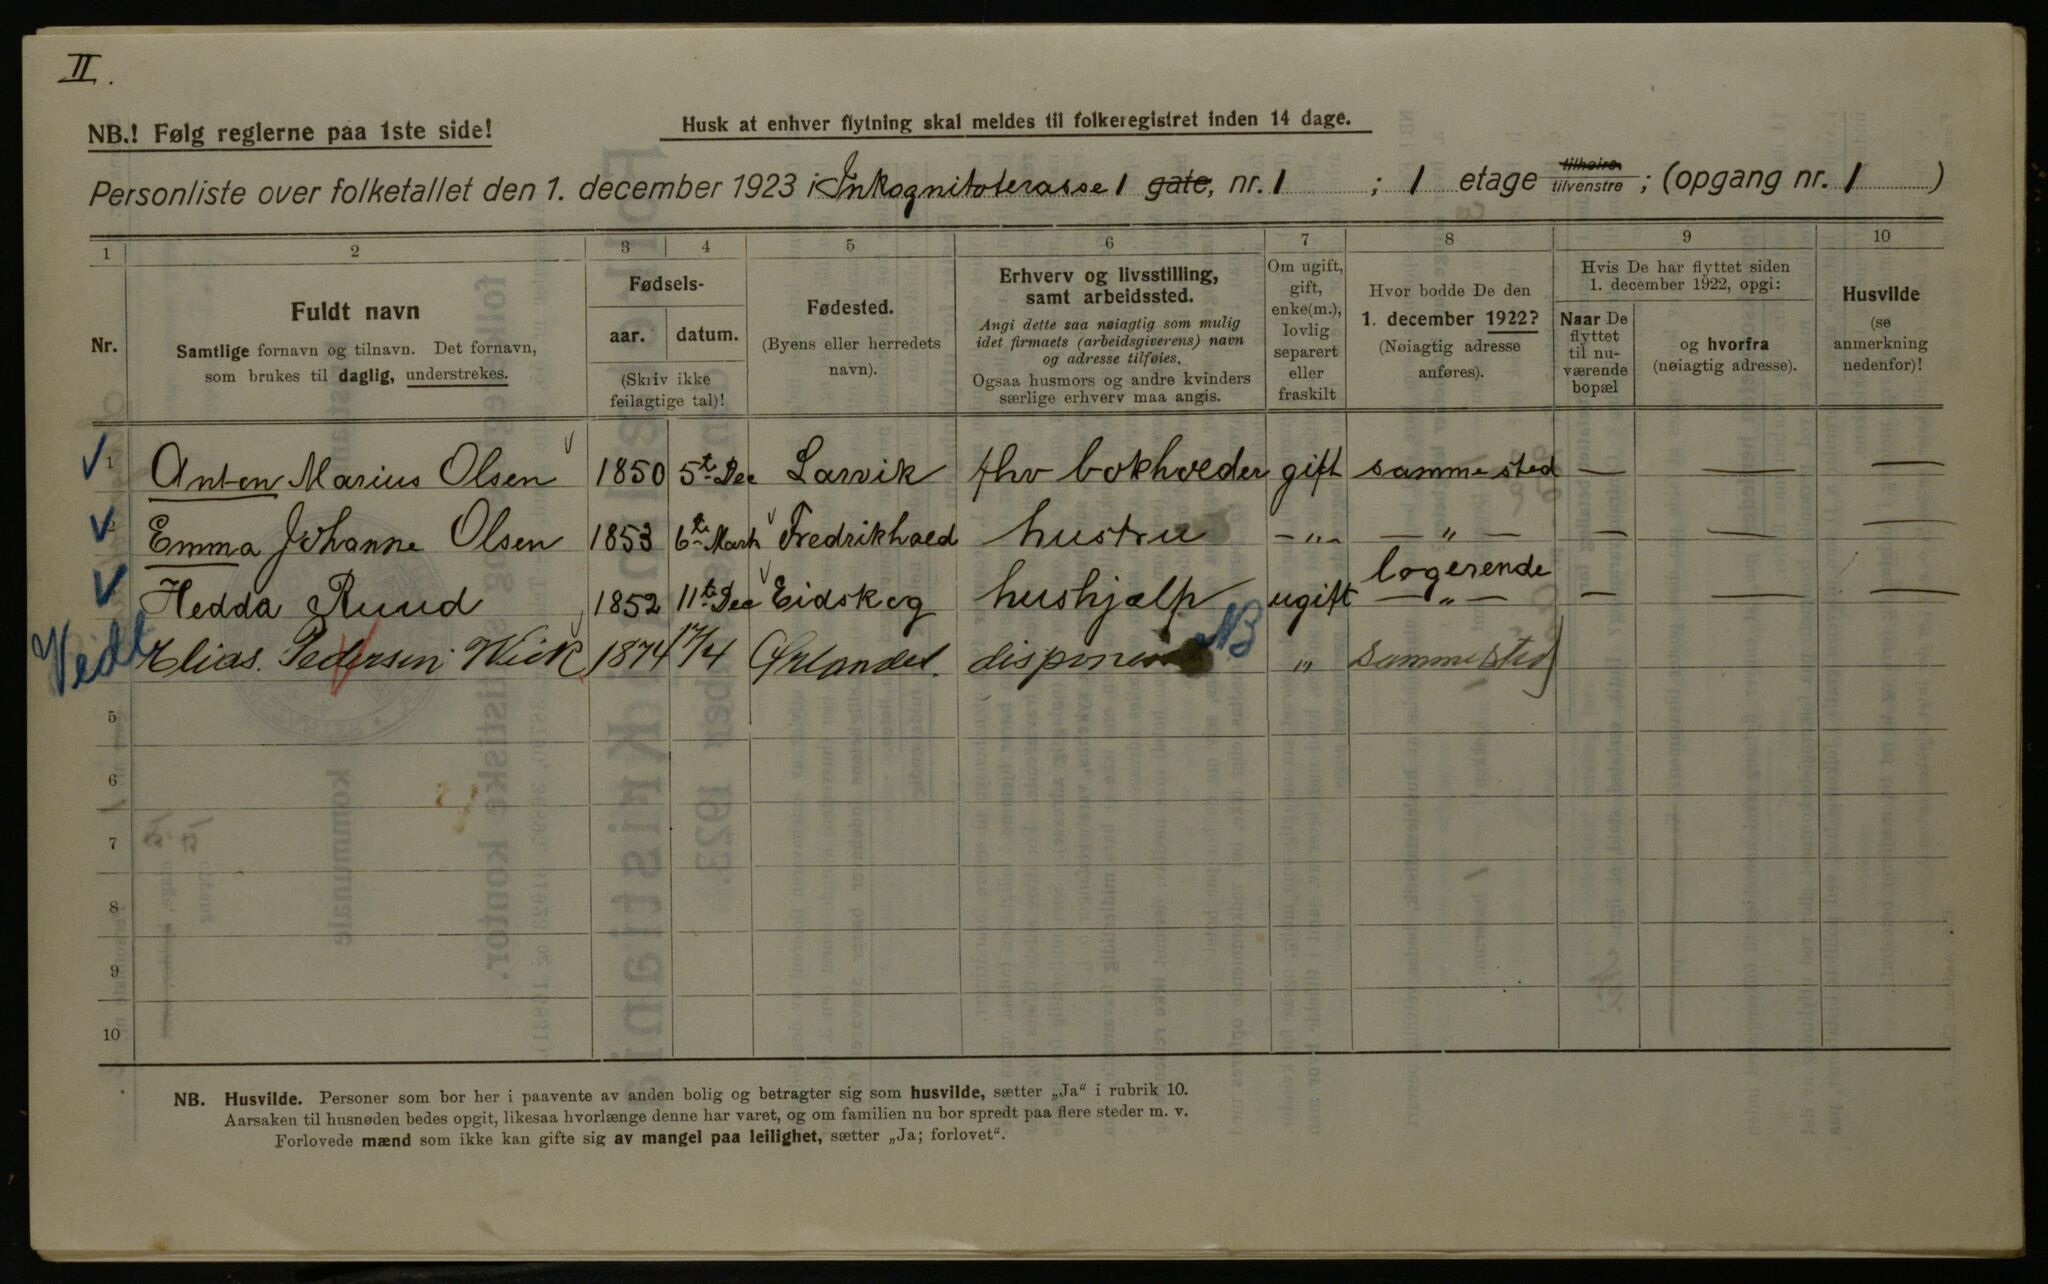 II.
NB.! Følg reglerne paa 1ste side!
Husk at enhver flytning skal meldes til folkeregistret inden 14 dage.
Personliste over folketallet den 1. december 1923 i Inkognitoterasse 1 gate, nr. 1 ; 1 etage tilhøire tilvenstre ; (opgang nr. 1 )
1 2 3 4 5 6 7 8 9 10
Nr.
Fuldt navn
Samtlige fornavn og tilnavn. Det fornavn,
som brukes til daglig, understrekes.
Fødsels-
aar. datum.
(Skriv ikke
feilagtige tal)!
Fødested.
(Byens eller herredets
navn).
Erhverv og livsstilling,
samt arbeidssted.
Angi dette saa nøiagtig som mulig
idet firmaets (arbeidsgiverens) navn
og adresse tilføies.
Ogsaa husmors og andre kvinders
særlige erhverv maa angis.
Om ugift,
gift,
enke(m.),
lovlig
separert
eller
fraskilt
Hvor bodde De den
1. december 1922?
(Nøiagtig adresse
anføres).
Hvis De har flyttet siden
1. december 1922, opgi:
Naar De
flyttet
til nu-
værende
bopæl
og hvorfra
(nøiagtig adresse).
Husvilde
(se
anmerkning
nedenfor)!
1 Anton Marius Olsen 1850 5t Dec Larvik fhv bokholder gift samme sted — — —
2 Emma Johanne Olsen 1853 6te Marts Fredrikhald hustru -„- — „ — — — —
logerende
Hedda Ruud 1852 11te Dec Eidskog hushjælp ugift — „ — — — —
Elias Pedersen Wick 1874 17/4 Ørlandet. NB „ samme sted
5
6
7
8
9
10
NB. Husvilde. Personer som bor her i paavente av anden bolig og betragter sig som husvilde, sætter „Ja“ i rubrik 10.
Aarsaken til husnøden bedes opgit, likesaa hvorlænge denne har varet, og om familien nu bor spredt paa flere steder m. v.
Forlovede mænd som ikke kan gifte sig av mangel paa leilighet, sætter „Ja; forlovet“.